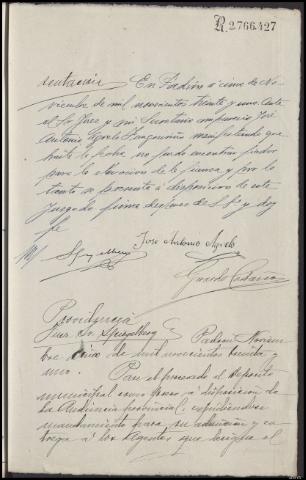 R.2766427
En Padrón a cinco de No-
viembre de mil novecientos treinta y uno. Ante
el Sr Juez y mi Secretario compareció José
Antonio Agrelo manifestando que
hasta la fecha no pudo encontrar fiador
para la elevación de la fianza y por lo
tanto se presenta a disposición de este
Juzgado, firma después de S.Sª y doy
fe
José Antonio Agrelo
Providencia
Juez Sr Spiegelberg Padrón Noviem
bre cinco de mil novecientos treinta y
uno.
Pase el procesado al Depósito
municipal como preso a disposición de
la Audiencia provincial, expidiéndose
mandamiento para su admisión y en
trega a los Agentes que